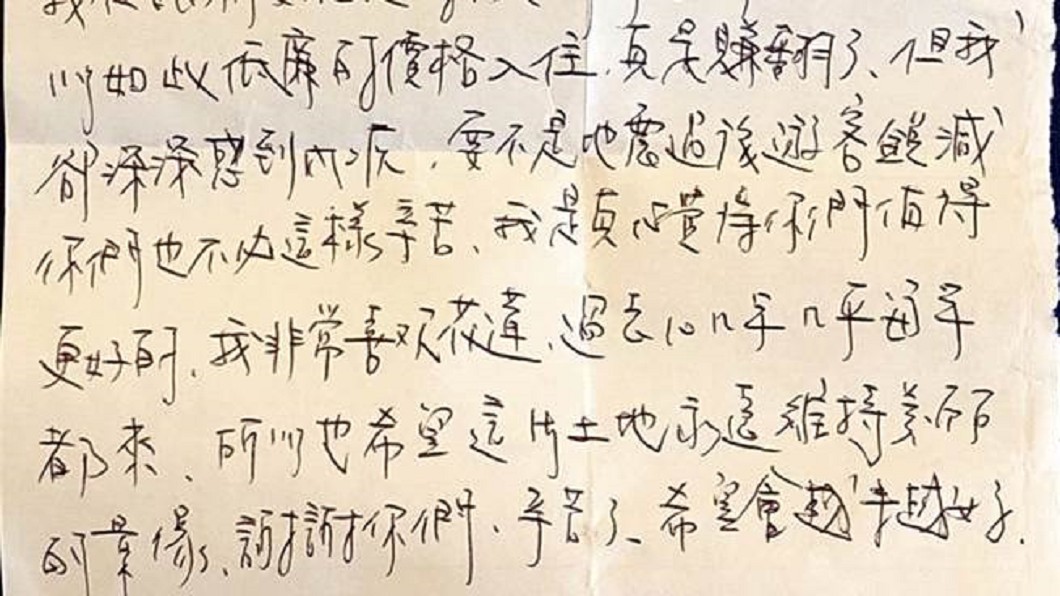 以如此低廉的價格入住、真是賺翻了、但我
卻深深感到心疼、要不是地震過後遊客銳減
你們也不必這樣辛苦、我是真心覺得你們值得
更好的、我非常喜欢花蓮、過去10几年几乎每年
都來、所以也希望這片土地永遠維持美麗
的景像、謝謝你們、辛苦了、希望會越來越好.